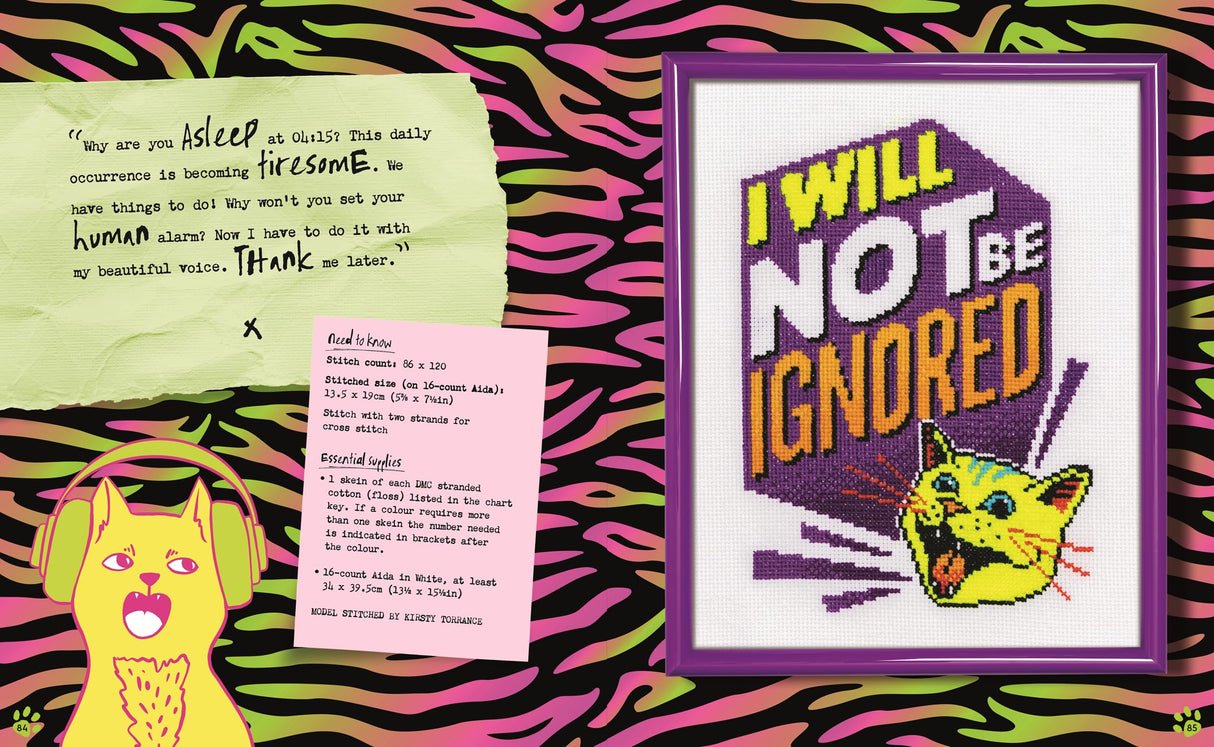 “Why are you Asleep at 04:15? This daily
occurrence is becoming tiresomE. We
have things to do! Why won't you set your
human alarm? Now I have to do it with
my beautiful voice. THank me later.”
x
Need to know
Stitch count: 86 x 120
Stitched size (on 16-count Aida):
13.5 x 19cm (5⅜ x 7½in)
Stitch with two strands for
cross stitch
Essential supplies
• 1 skein of each DMC stranded
cotton (floss) listed in the chart
key. If a colour requires more
than one skein the number needed
is indicated in brackets after
the colour.
• 16-count Aida in White, at least
34 x 39.5cm (13½ x 15½in)
MODEL STITCHED BY KIRSTY TORRANCE
84
I WILL
NOT BE
IGNORED
85